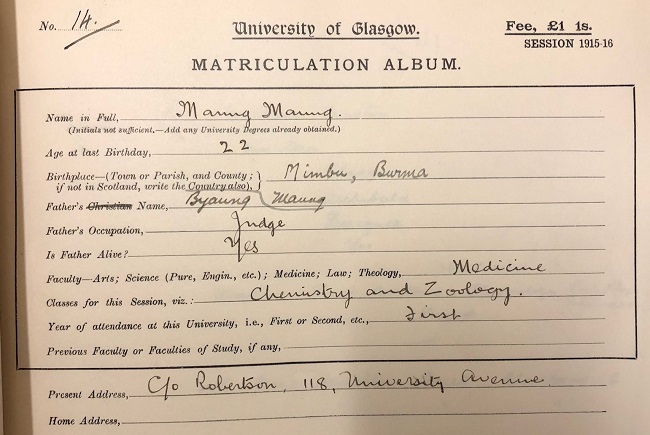 No. 14. University of Glasgow. Fee, £1 1s.
SESSION 1915-16
MATRICULATION ALBUM.
Name in Full, Maung Maung.
(Initials not sufficient.—Add any University Degrees already obtained.)
Age at last Birthday, 22
Birthplace—(Town or Parish, and County; if not in Scotland, write the Country also), Mimbu, Burma
Father's Christian Name, Byaung Maung
Father's Occupation, Judge
Is Father Alive? Yes
Faculty—Arts; Science (Pure, Engin., etc.); Medicine; Law; Theology, Medicine
Classes for this Session, viz.: Chemistry and Zoology.
Year of attendance at this University, i.e., First or Second, etc., First
Previous Faculty or Faculties of Study, if any,
Present Address, C/o Robertson, 118, University Avenue.
Home Address,